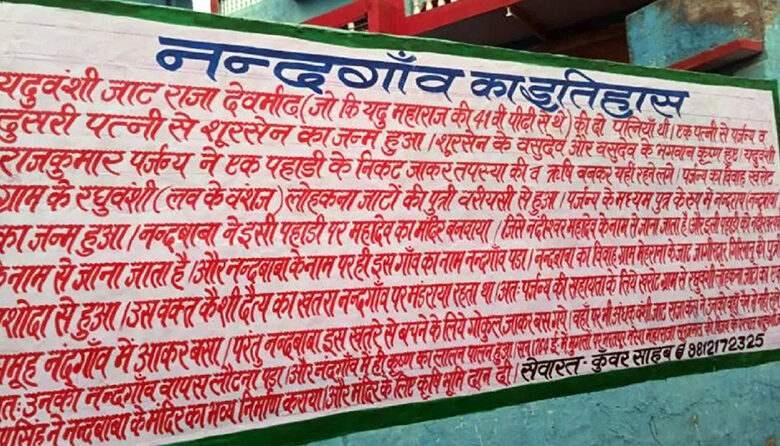 नन्दगाँव का इतिहास
यदुवंशी जाट राजा देवमीढ (जो कि यदु महाराज की 41 वी पीढी से थे) की दो पत्नियाँ थी। एक पत्नी से पर्जन्य व
दुसरी पत्नी से शूरसेन का जन्म हुआ। शूरसेन के वसुदेव और वसुदेव के भगवान कृष्ण हुए। यदुवंशी
राजकुमार पर्जन्य ने एक पहाडी के निकट जाकर तपस्या की व ऋषि बनकर यही रहने लगे। पर्जन्य का विवाह
ग्राम के रघुवंशी (लव के वंशज) लोहकना जाटों की पुत्री वरीयसी से हुआ। पर्जन्य के मध्यम पुत्र के रुप में नन्दराय (नन्दबाबा)
का जन्म हुआ। नन्दबाबा ने इसी पहाडी पर महादेव का मंदिर बनवाया। जिसे नंदीश्वर महादेव के नाम से जाना जाता है और इसी पहाडी को
के नाम से जाना जाता है। और नन्दबाबा के नाम पर ही इस गाँव का नाम नन्दगाँव पडा। नन्दबाबा का विवाह ग्राम मेहराना के जाट जागीरदार की पुत्री
यशोदा से हुआ। उस वक्त केशी दैत्य का खतरा नन्दगाँव पर मंडराया रहता था। अतः पर्जन्य की सहायता के लिये ग्राम से रघुवंशी
समूह नंदगाँव में आकर बसा। परंतु नन्दबाबा इस खतरे से बचने के लिये गोकुल जाकर बस गये। वहाँ पर भी
अतः उनको नन्दगाँव वापस लौटना पडा। और नंदगाँव में ही कृष्ण का लालन पालन हुआ। सन
सिंह ने नन्दबाबा के मंदिर का भव्य निर्माण कराया। और मंदिर के लिए कृषि भूमि दान दी। सेवारत- कुंवर साहब @ 9812172325